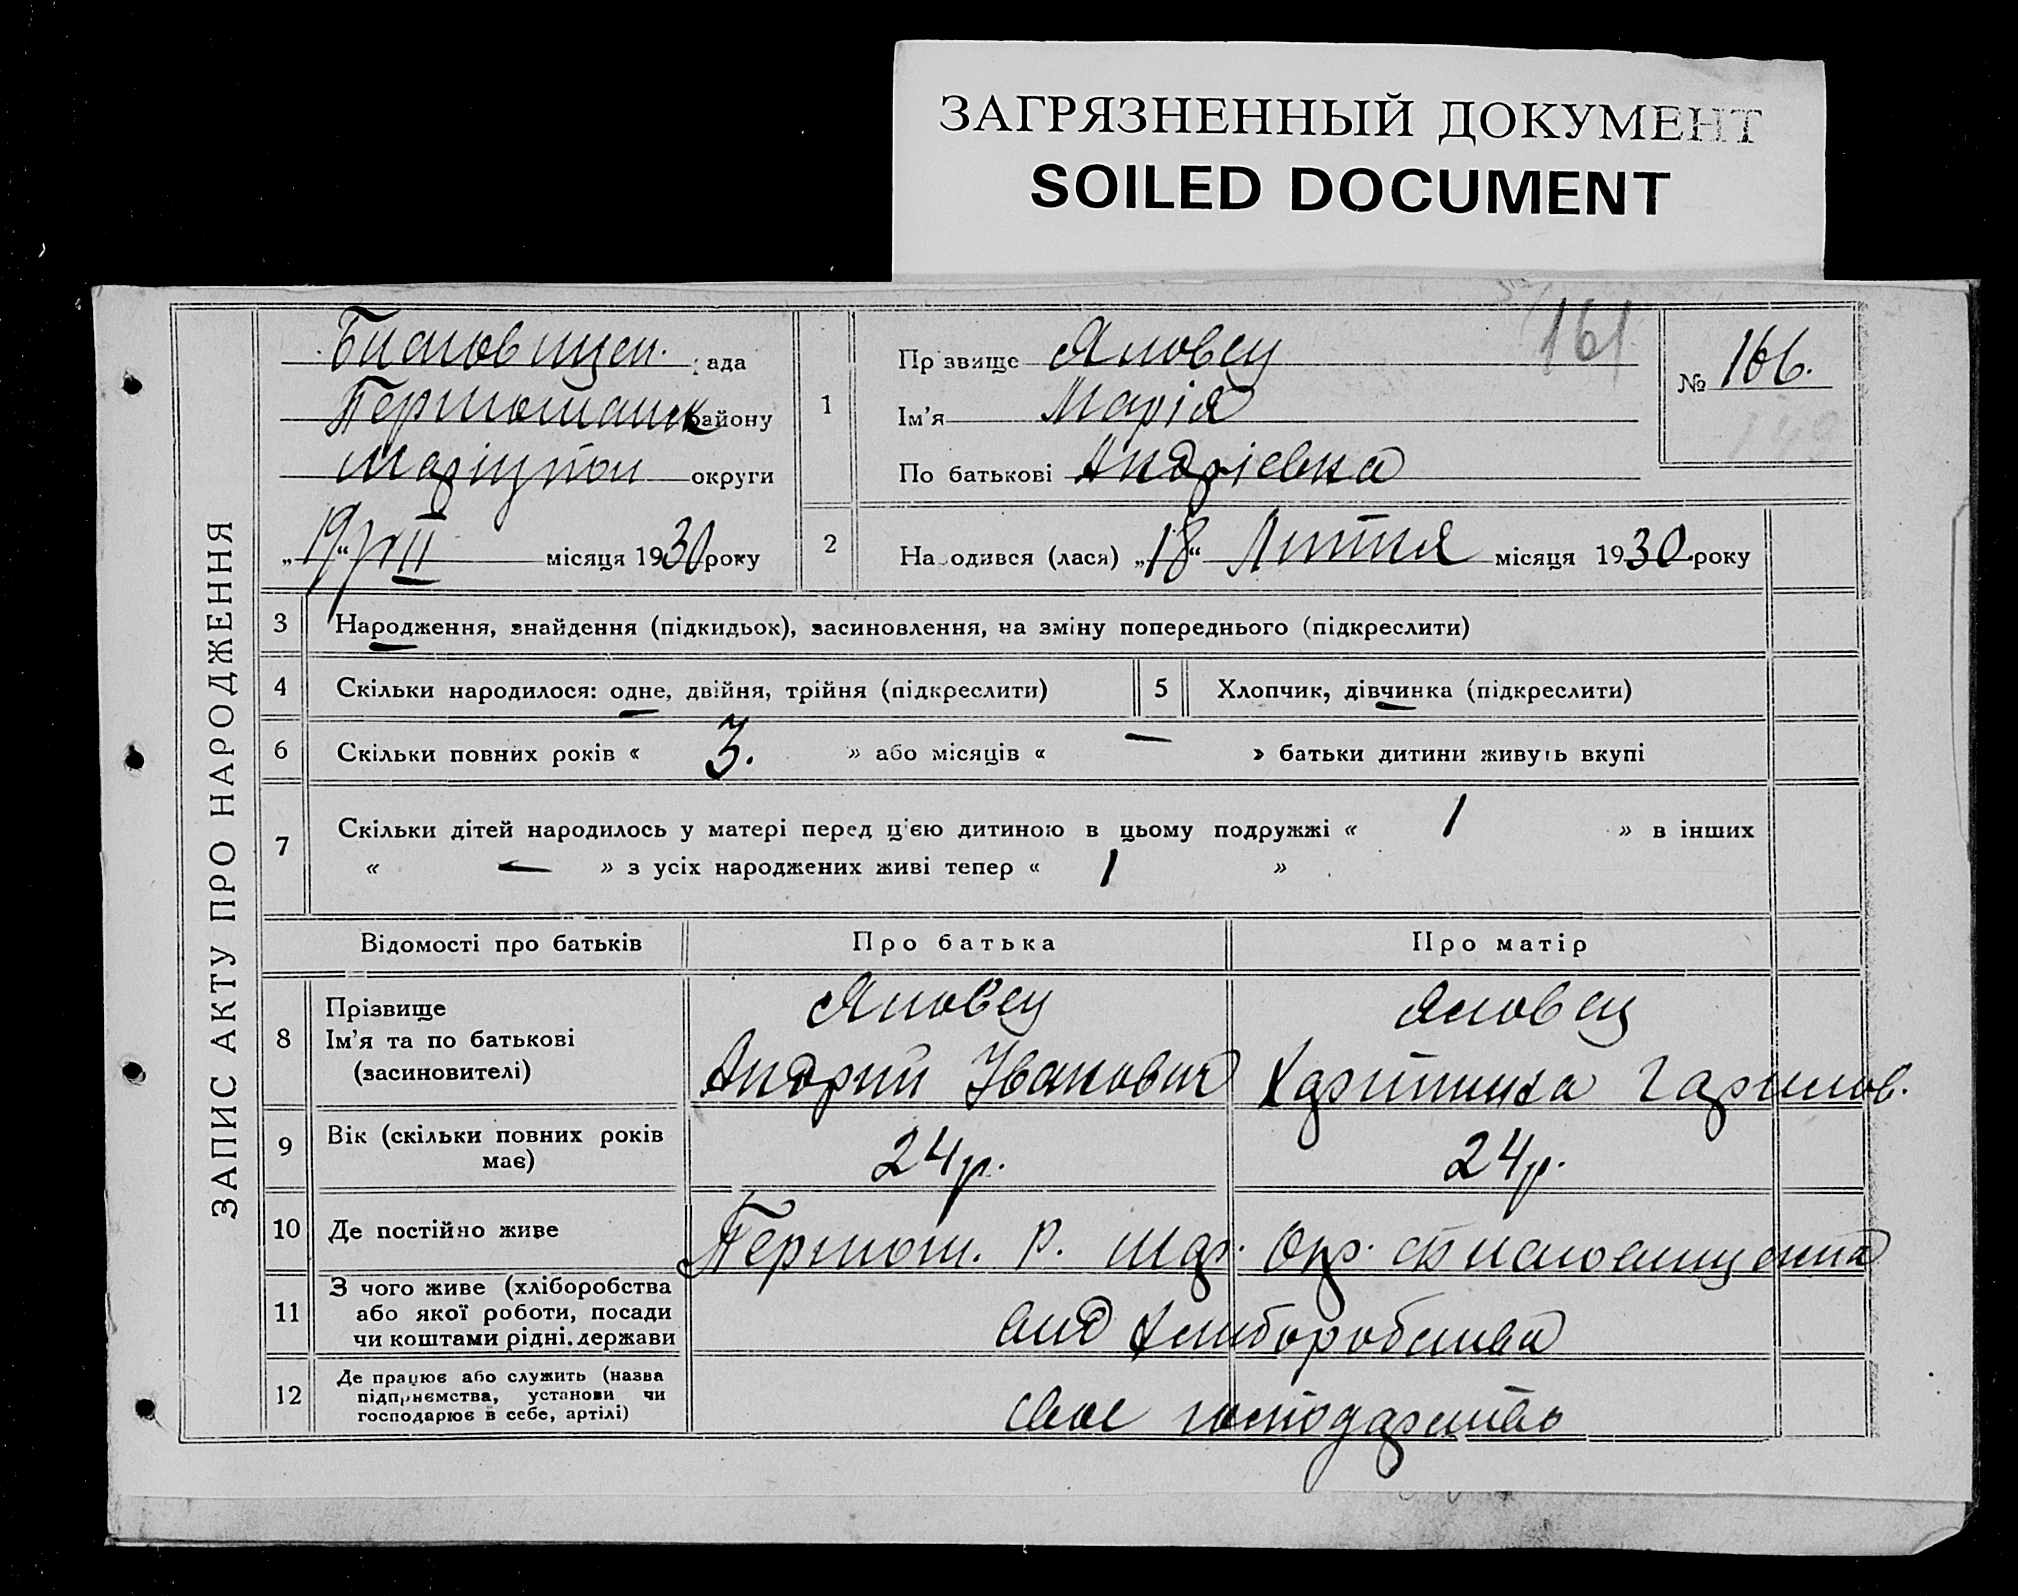 ЗАГРЯЗНЕННЫЙ ДОКУМЕНТ
SOILED DOCUMENT
161
ЗАПИС АКТУ ПРО НАРОДЖЕННЯ
ада
району
Маріупол округи
„19“ VII місяця 1930 року
1
Пр звище Яловец
Ім'я Марія
По батькові Андріевна
№ 166.
2
На одився (лася) „18“ Липня місяця 1930 року
3 Народження, знайдення (підкидьок), засиновлення, на зміну попереднього (підкреслити)
4 Скільки народилося: одне, двійня, трійня (підкреслити)
5 Хлопчик, дівчинка (підкреслити)
6 Скільки повних років « 3. » або місяців « — » батьки дитини живуть вкупі
7 Скільки дітей народилось у матері перед цією дитиною в цьому подружжі « 1 » в інших
« — » з усіх народжених живі тепер « 1 »
Відомості про батьків Про батька Про матір
8 Прізвище
Ім'я та по батькові
(засиновителі)
Яловец
Андрий Іванович
Яловец
Харитина Гаврилов.
9 Вік (скільки повних років
має)
24 р. 24 р.
10 Де постійно живе
р. Мар. Окр.
11 З чого живе (хліборобства
або якої роботи, посади
чи коштами рідні, держави
вид хлиборобства
12 Де працює або служить (назва
підприємства, установи чи
господарює в себе, артілі)
свое господарство